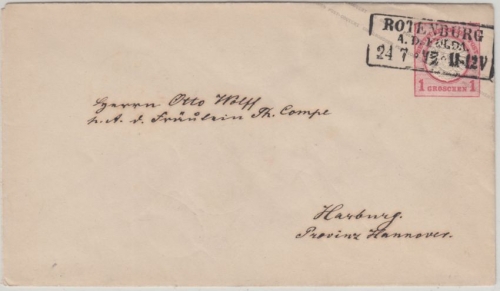 ROTENBURG
A. D. FULDA.
24 7 11-12V
1 GROSCHEN 1
Herrn Otto Wolff
p. A. d. Fräulein Th. Compe
Harburg.
Provinz Hannover.